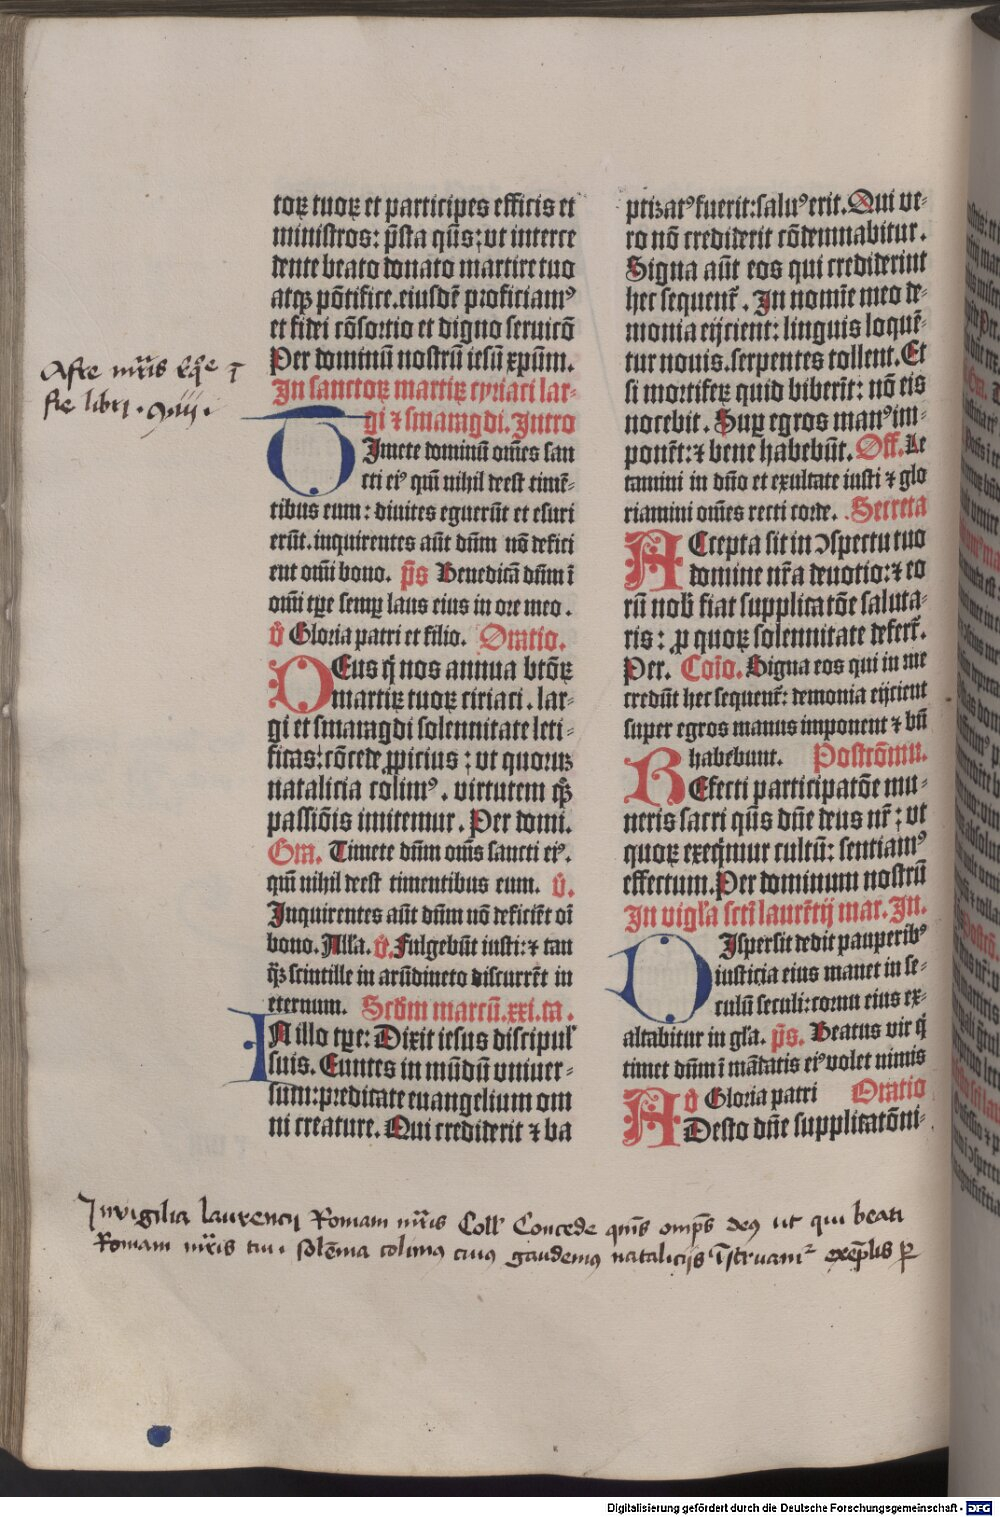 Afre mr̄is
fie libri . ꝯiii .
toꝝ tuoꝝ et participes efficis et
ministros: p̄sta q̄s; vt interce
dente beato donato martire tuo
atqꝫ pōtifice. eiusdē proficiamꝰ
et fidei cōsortio et digno seruicō
Per dominū nostrū iesū xp̄um.
In sanctoꝝ martiꝝ cyriaci lar⸗
gi ⁊ smaragdi. Intro
TImete dominū om̄es san
cti eiꝰ qm̄ nihil deest timē⸗
tibus eum: diuites eguerūt et esuri
erūt. inquirentes aūt dūm nō defici
ent om̄i bono. p̄s Benedicā dn̄m ī
om̄i tꝑe semꝑ laus eius in ore meo.
v̄ Gloria patri et filio. Oratio.
DEus q̇ nos annua btōꝝ
martiꝝ tuoꝝ ciriaci. lar⸗
gi et smaragdi solennitate leti⸗
ficas: cōcede ꝓpicius; vt quoruꝫ
natalicia colimꝰ. virtutem qꝫ
passiōis imitemur. Per domi.
Gra. Timete dn̄m om̄s sancti eiꝰ.
qm̄ nihil deest timentibus eum. v̄.
Inquirentes aūt dn̄m nō deficiēt oī
bono. Alla. v̄. Fulgebūt iusti: ⁊ tan
qꝫ scintille in arūdineto discurrēt in
eternum. Scd̄m marcū. xxi. ca.
IN illo tꝑe: Dixit iesus discipulꝰ
suis. Euntes in mūdū vniuer⸗
sum: predicate euangelium om
ni creature. Qui crediderit ⁊ ba
ptizatꝰ fuerit: saluꝰ erit. Qui ve⸗
ro nō crediderit cōdemnabitur.
Signa aūt eos qui crediderint
hec sequent̄. In nomīe meo de⸗
monia eijcient: linguis loquē⸗
tur nouis. serpentes tollent. Et
si mortiferꝝ quid biberīt: nō eis
nocebit. Suꝑ egros manꝰ im⸗
ponēt: ⁊ bene habebūt. Off. Le
tamini in dn̄o et exultate iusti ⁊ glo
riamini om̄es recti corde. Secreta
ACcepta sit in ↄspectu tuo
domine nr̄a deuotio: ⁊ eo
rū nob̄ fiat supplicatōe saluta⸗
ris: ꝑ quoꝝ solennitate defert̄.
Per. Coīo. Signa eos qui in me
credūt hec sequent̄: demonia eijcient
super egros manus imponent ⁊ bn̄
habebunt. Postcōmu.
REfecti participatōe mu⸗
neris sacri q̄s dn̄e deus nr̄; vt
quoꝝ exeq̇mur cultū: sentiamꝰ
effectum. Per dominum nostrū
In vigl̓a scti laurētij mar. In.
DIspersit dedit pauperibꝰ
iusticia eius manet in se⸗
culū seculi: cornu eius ex⸗
altabitur in gl̓a. p̄s. Beatus vir q̇
timet dn̄m ī mādatis eiꝰ volet nimis
v̄ Gloria patri Oratio
ADesto dn̄e supplicatōni⸗
In vigilia laurencij Romani mr̄is Coll̓ Concede qm̄s omps̄ deꝰ ut qui beati
Romani mr̄is tui solēnia colimꝰ cuius gaudemꝰ natalicijs īstruamr exēplis ꝑ
Digitalisierung gefördert durch die Deutsche Forschungsgemeinschaft - DFG